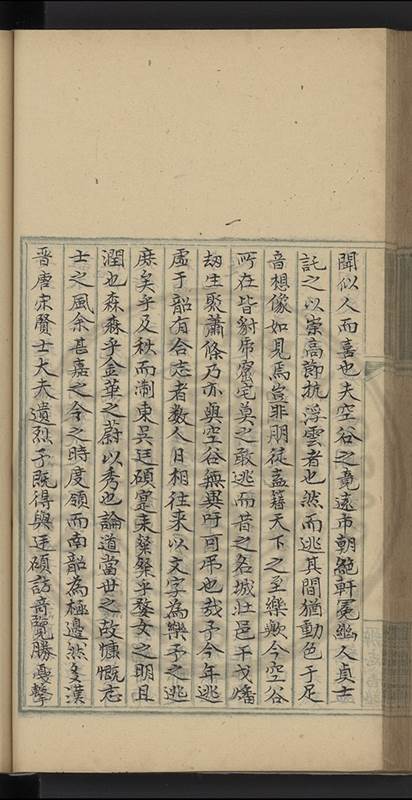 聞似人而喜也夫空谷之竟遠市朝絕軒冕幽人貞士
託之以崇高節抗浮雲者也然而逃其間猶動色于足
音想像如見焉豈非朋徒盍簪天下之至樂歟今空谷
所在皆豺虎窟宅莫之敢逃而昔之名城壯邑干戈燔
劫生聚蕭條乃亦與空谷無異吁可弔也哉予今年逃
虛于韶有合志者數人日相往來以文字為樂予之逃
庶矣乎及秋而淛東吳廷碩寔來粲粲乎婺女之明且
潤也森森乎金華之蔚以秀也論道當世之故慷慨志
士之風余甚嘉之今之時度嶺而南韶為極邊然多漢
晉唐宋賢士大夫遺烈予既得與廷碩訪奇覽勝憂擊